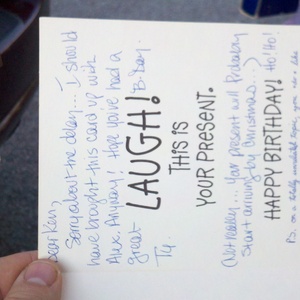 Dear Ken,
Sorry about the delay... I should
have brought this card up with
Alex. Anyway! Hope you've had a
great B-Day.
LAUGH!
Ty.
THIS IS
YOUR PRESENT.
(Not really... Your present will probably
start arriving by Christmas...)
HAPPY BIRTHDAY! Ho! Ho!
P.S. on a totally unrelated